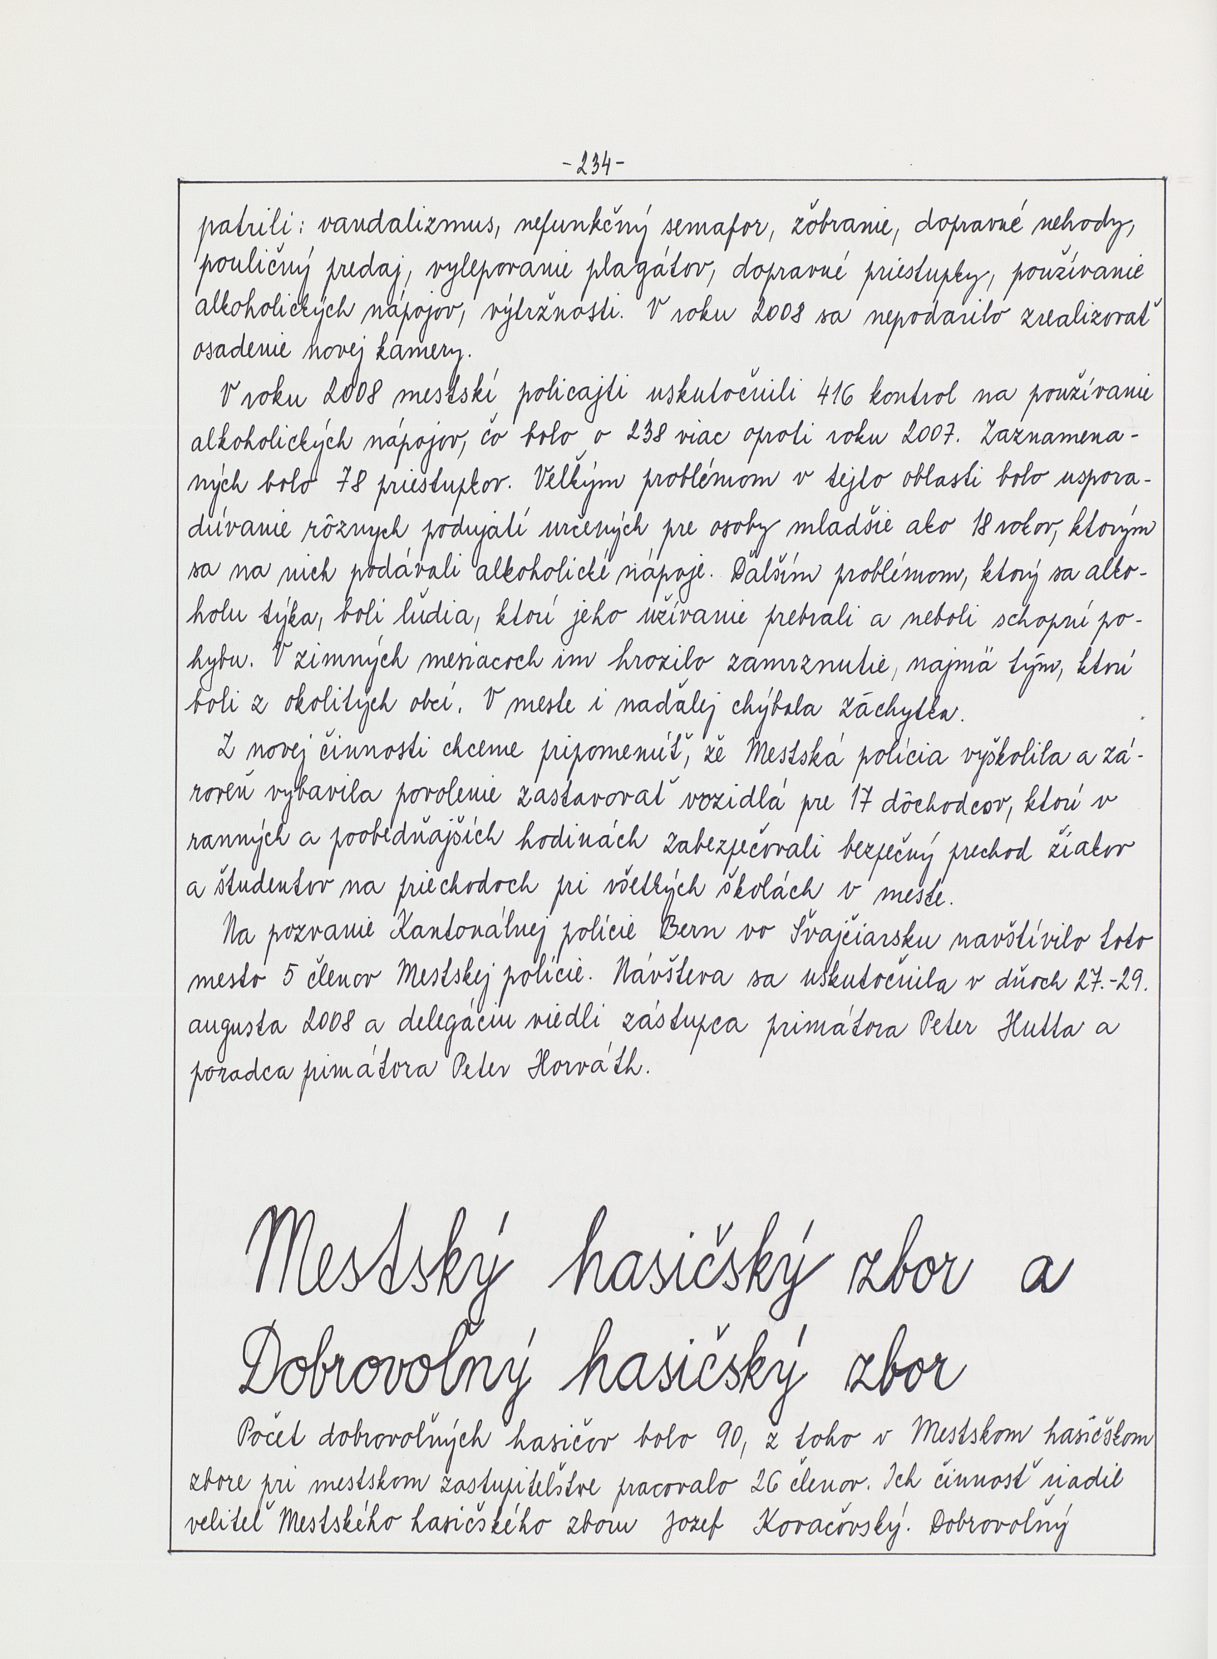 -234-
patrili: vandalizmus, nefunkčný semafor, žobranie, dopravné nehody,
pouličný predaj, vylepovanie plagátov, dopravné priestupky, používanie
alkoholických nápojov, výtržnosti. V roku 2008 sa nepodarilo zrealizovať
osadenie novej kamery.
V roku 2008 mestskí policajti uskutočnili 416 kontrol na používanie
alkoholických nápojov, čo bolo o 238 viac oproti roku 2007. Zaznamena-
ných bolo 78 priestupkov. Veľkým problémom v tejto oblasti bolo uspora-
dúvanie rôznych podujatí určených pre osoby mladšie ako 18 rokov, ktorým
sa na nich podávali alkoholické nápoje. Ďalším problémom, ktorý sa alko-
holu týka, boli ľudia, ktorí jeho užívanie prebrali a neboli schopní po-
hybu. V zimných mesiacoch im hrozilo zamrznutie, najmä tým, ktorí
boli z okolitých obcí. V meste i naďalej chýbala záchytka.
Z novej činnosti chceme pripomenúť, že Mestská polícia vyškolila a zá-
roveň vybavila povolenie zastavovať vozidlá pre 17 dôchodcov, ktorí v
ranných a poobedňajších hodinách zabezpečovali bezpečný prechod žiakov
a študentov na priechodoch pri všetkých školách v meste.
Na pozvanie Kantonálnej polície Bern vo Švajčiarsku navštívilo toto
mesto 5 členov Mestskej polície. Návšteva sa uskutočnila v dňoch 27.-29.
augusta 2008 a delegáciu viedli zástupca primátora Peter Hutta a
poradca primátora Peter Horváth.
Mestský hasičský zbor a
Dobrovoľný hasičský zbor
Počet dobrovoľných hasičov bolo 90, z toho v Mestskom hasičskom
zbore pri mestskom zastupiteľstve pracovalo 26 členov. Ich činnosť riadil
veliteľ Mestského hasičského zboru Jozef Kovačovský. Dobrovoľný